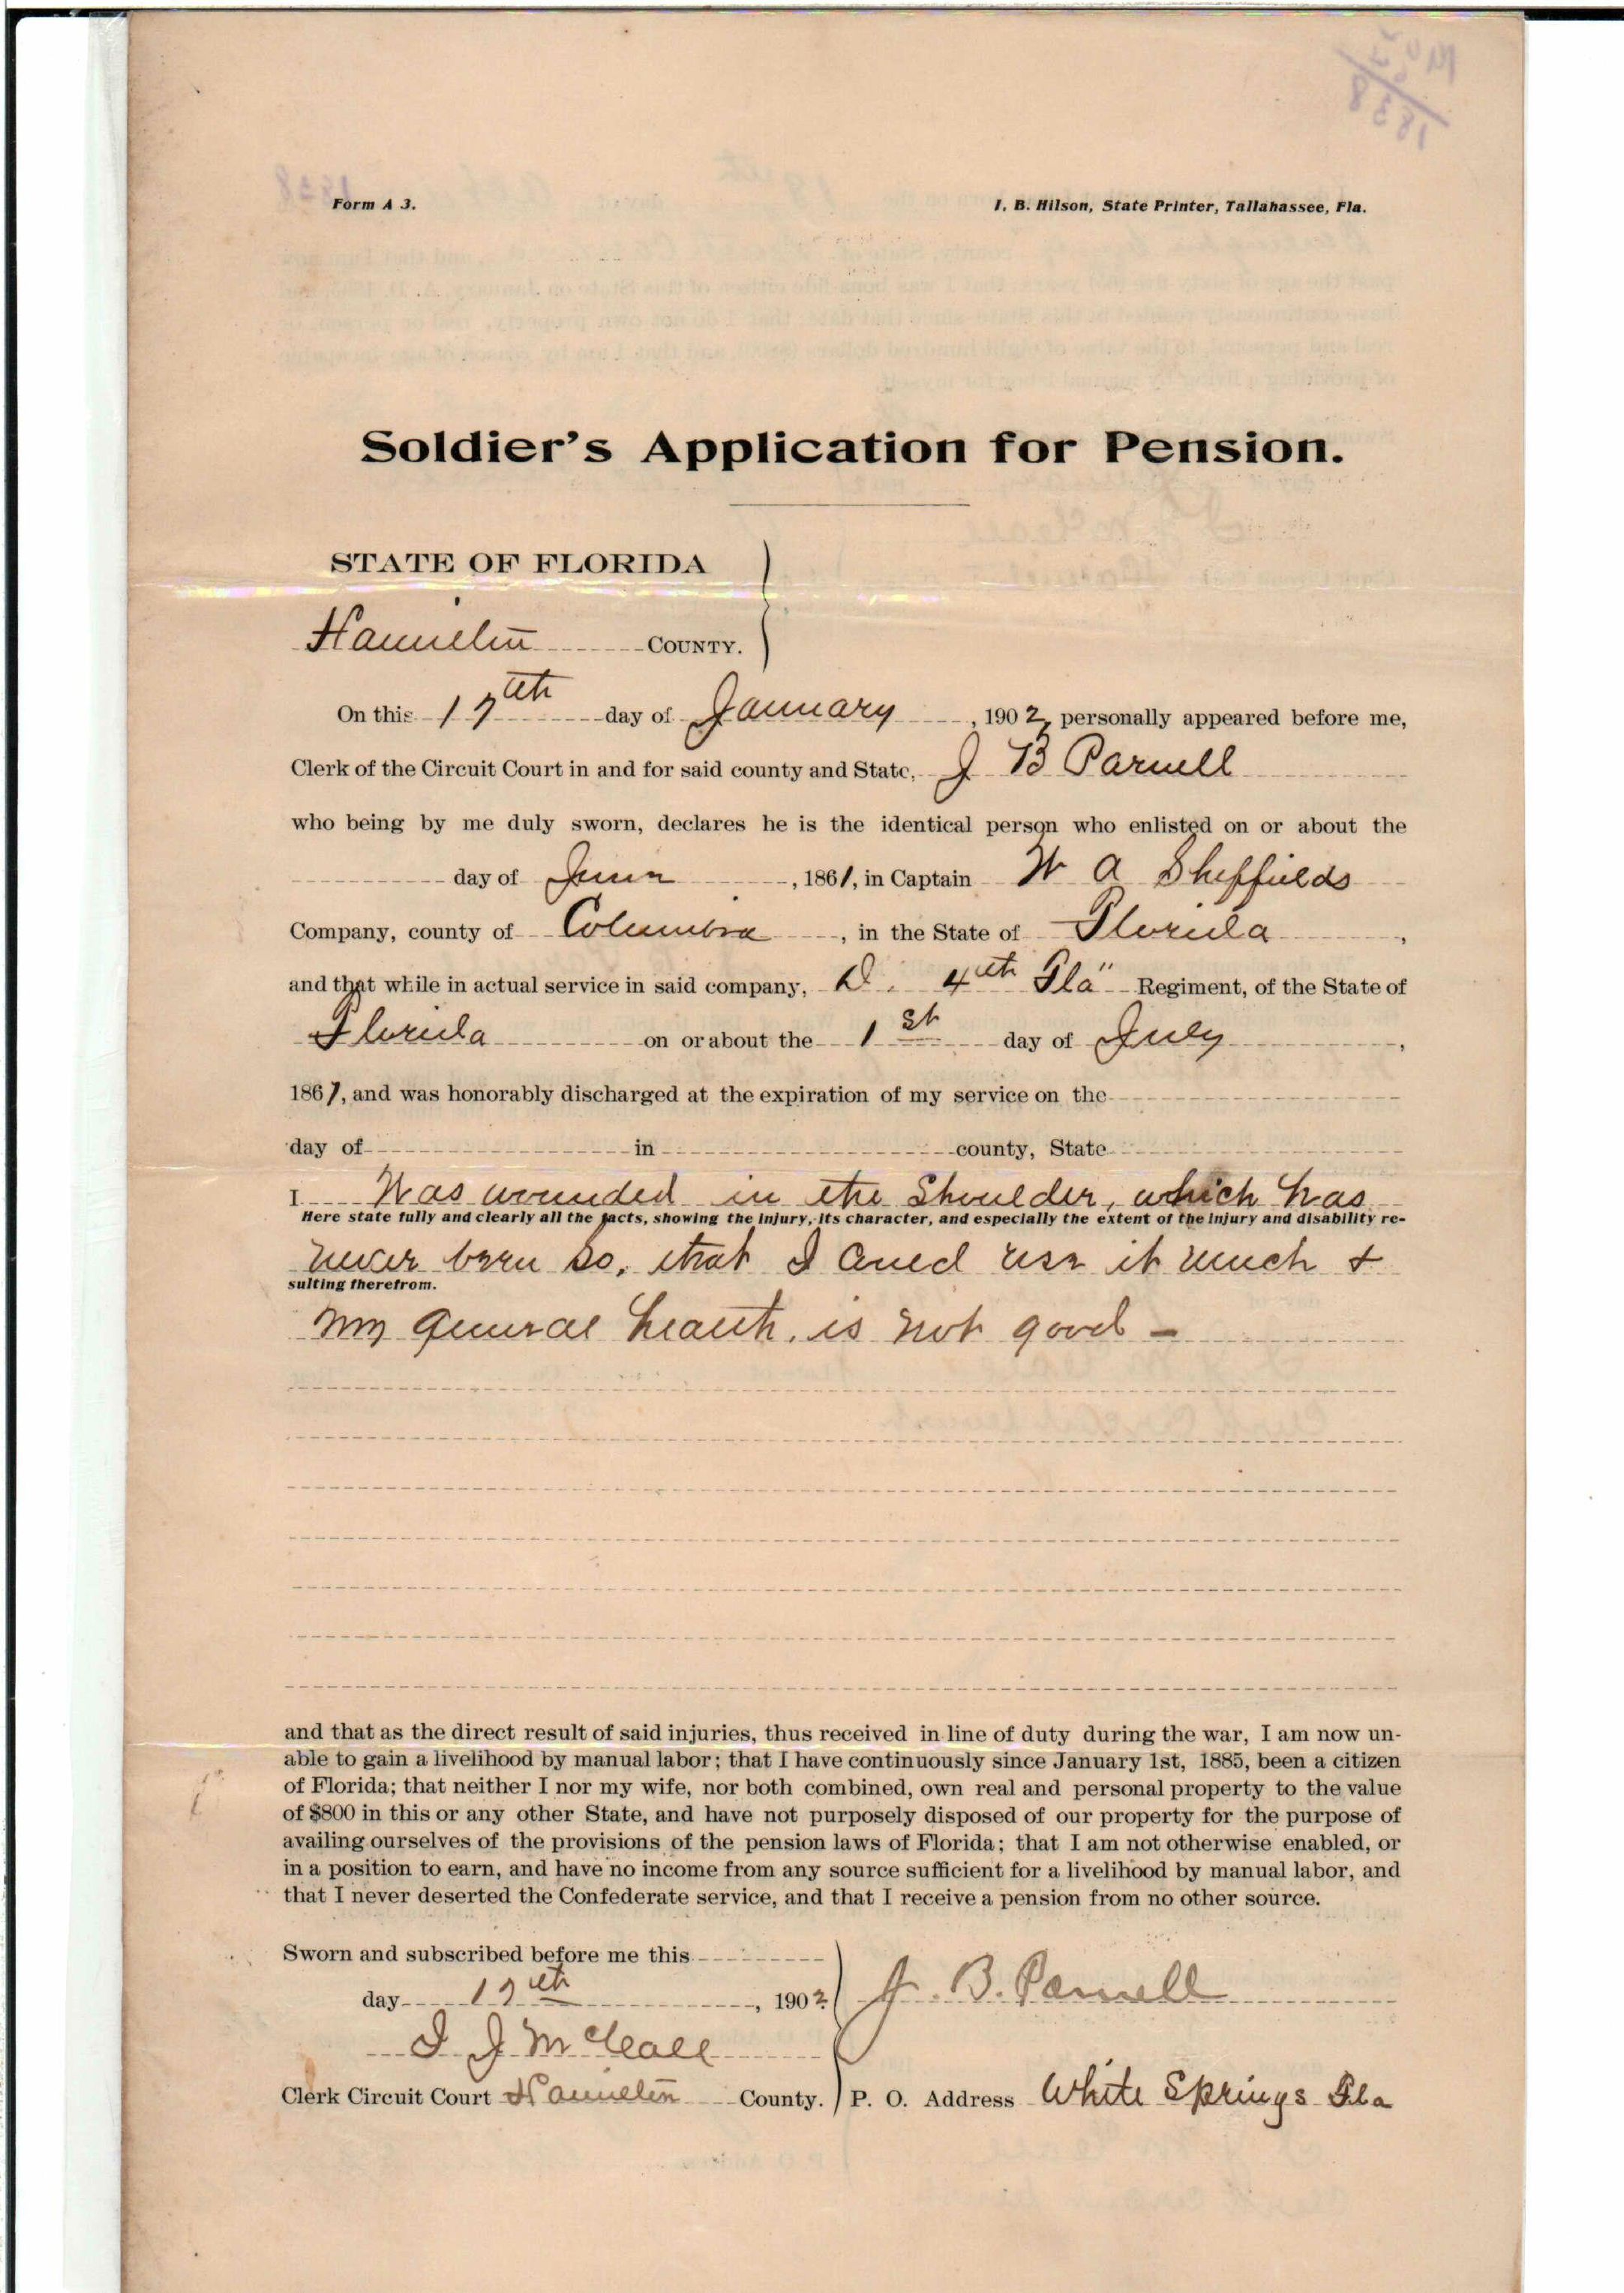 Form A 3.
I. B. Hilson, State Printer, Tallahassee, Fla.
Soldier's Application for Pension.
STATE OF FLORIDA
Hamilton COUNTY.
On this 17th day of January, 1902, personally appeared before me,
Clerk of the Circuit Court in and for said county and State, J B Parnell
who being by me duly sworn, declares he is the identical person who enlisted on or about the
day of June, 1861, in Captain W A Sheffields
Company, county of Columbia, in the State of Florida,
and that while in actual service in said company, D. 4th Fla" Regiment, of the State of
Florida on or about the 1st day of July,
1861, and was honorably discharged at the expiration of my service on the
day of in county, State
I Was wounded in the Shoulder, which has
Here state fully and clearly all the facts, showing the injury, its character, and especially the extent of the injury and disability re-
never been so, that I could use it much &
sulting therefrom.
my general health, is not good -
and that as the direct result of said injuries, thus received in line of duty during the war, I am now un-
able to gain a livelihood by manual labor; that I have continuously since January 1st, 1885, been a citizen
of Florida; that neither I nor my wife, nor both combined, own real and personal property to the value
of $800 in this or any other State, and have not purposely disposed of our property for the purpose of
availing ourselves of the provisions of the pension laws of Florida; that I am not otherwise enabled, or
in a position to earn, and have no income from any source sufficient for a livelihood by manual labor, and
that I never deserted the Confederate service, and that I receive a pension from no other source.
Sworn and subscribed before me this
day 17th, 1902 J. B. Parnell
J McCall
Clerk Circuit Court Hamilton County. P. O. Address White Springs Fla